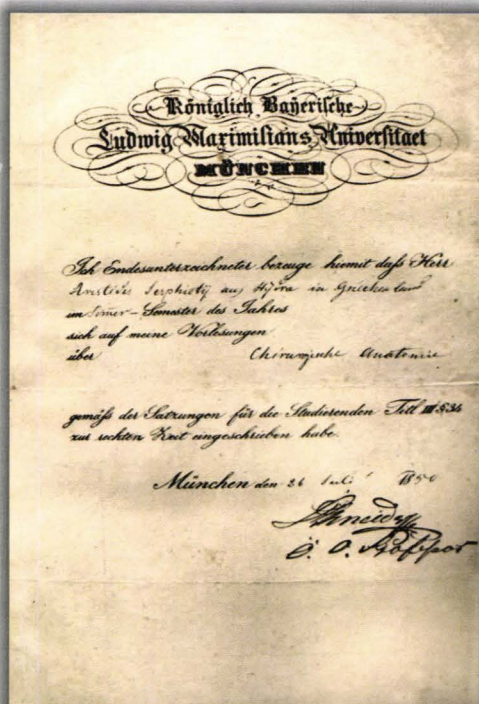 Königlich Bayerische
Ludwig Maximilians Universitaet
MÜNCHEN
Ich Endesunterzeichneter bezeuge hiemit daß Herr
Aristides Serphiotis aus Hydra in Griechenland
im Somer-Semester des Jahres
sich auf meine Vorlesungen
über Chirurgische Anatomie
gemäß der Satzungen für die Studierenden Titl III § 34
zur rechten Zeit eingeschrieben habe.
München den 26 Juli 1850
Schneider
Professor